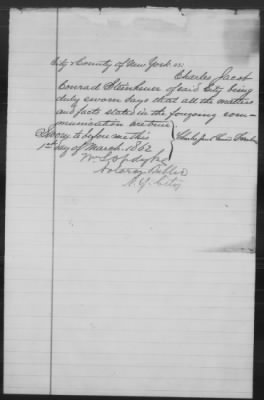 City & County of New York ss:
Charles Jacob
Conrad of said City being
duly sworn says that all the matters
and facts stated in the foregoing com-
munication are true
Sworn to before me this
1st day of March 1862
Notary Public
N.Y. City